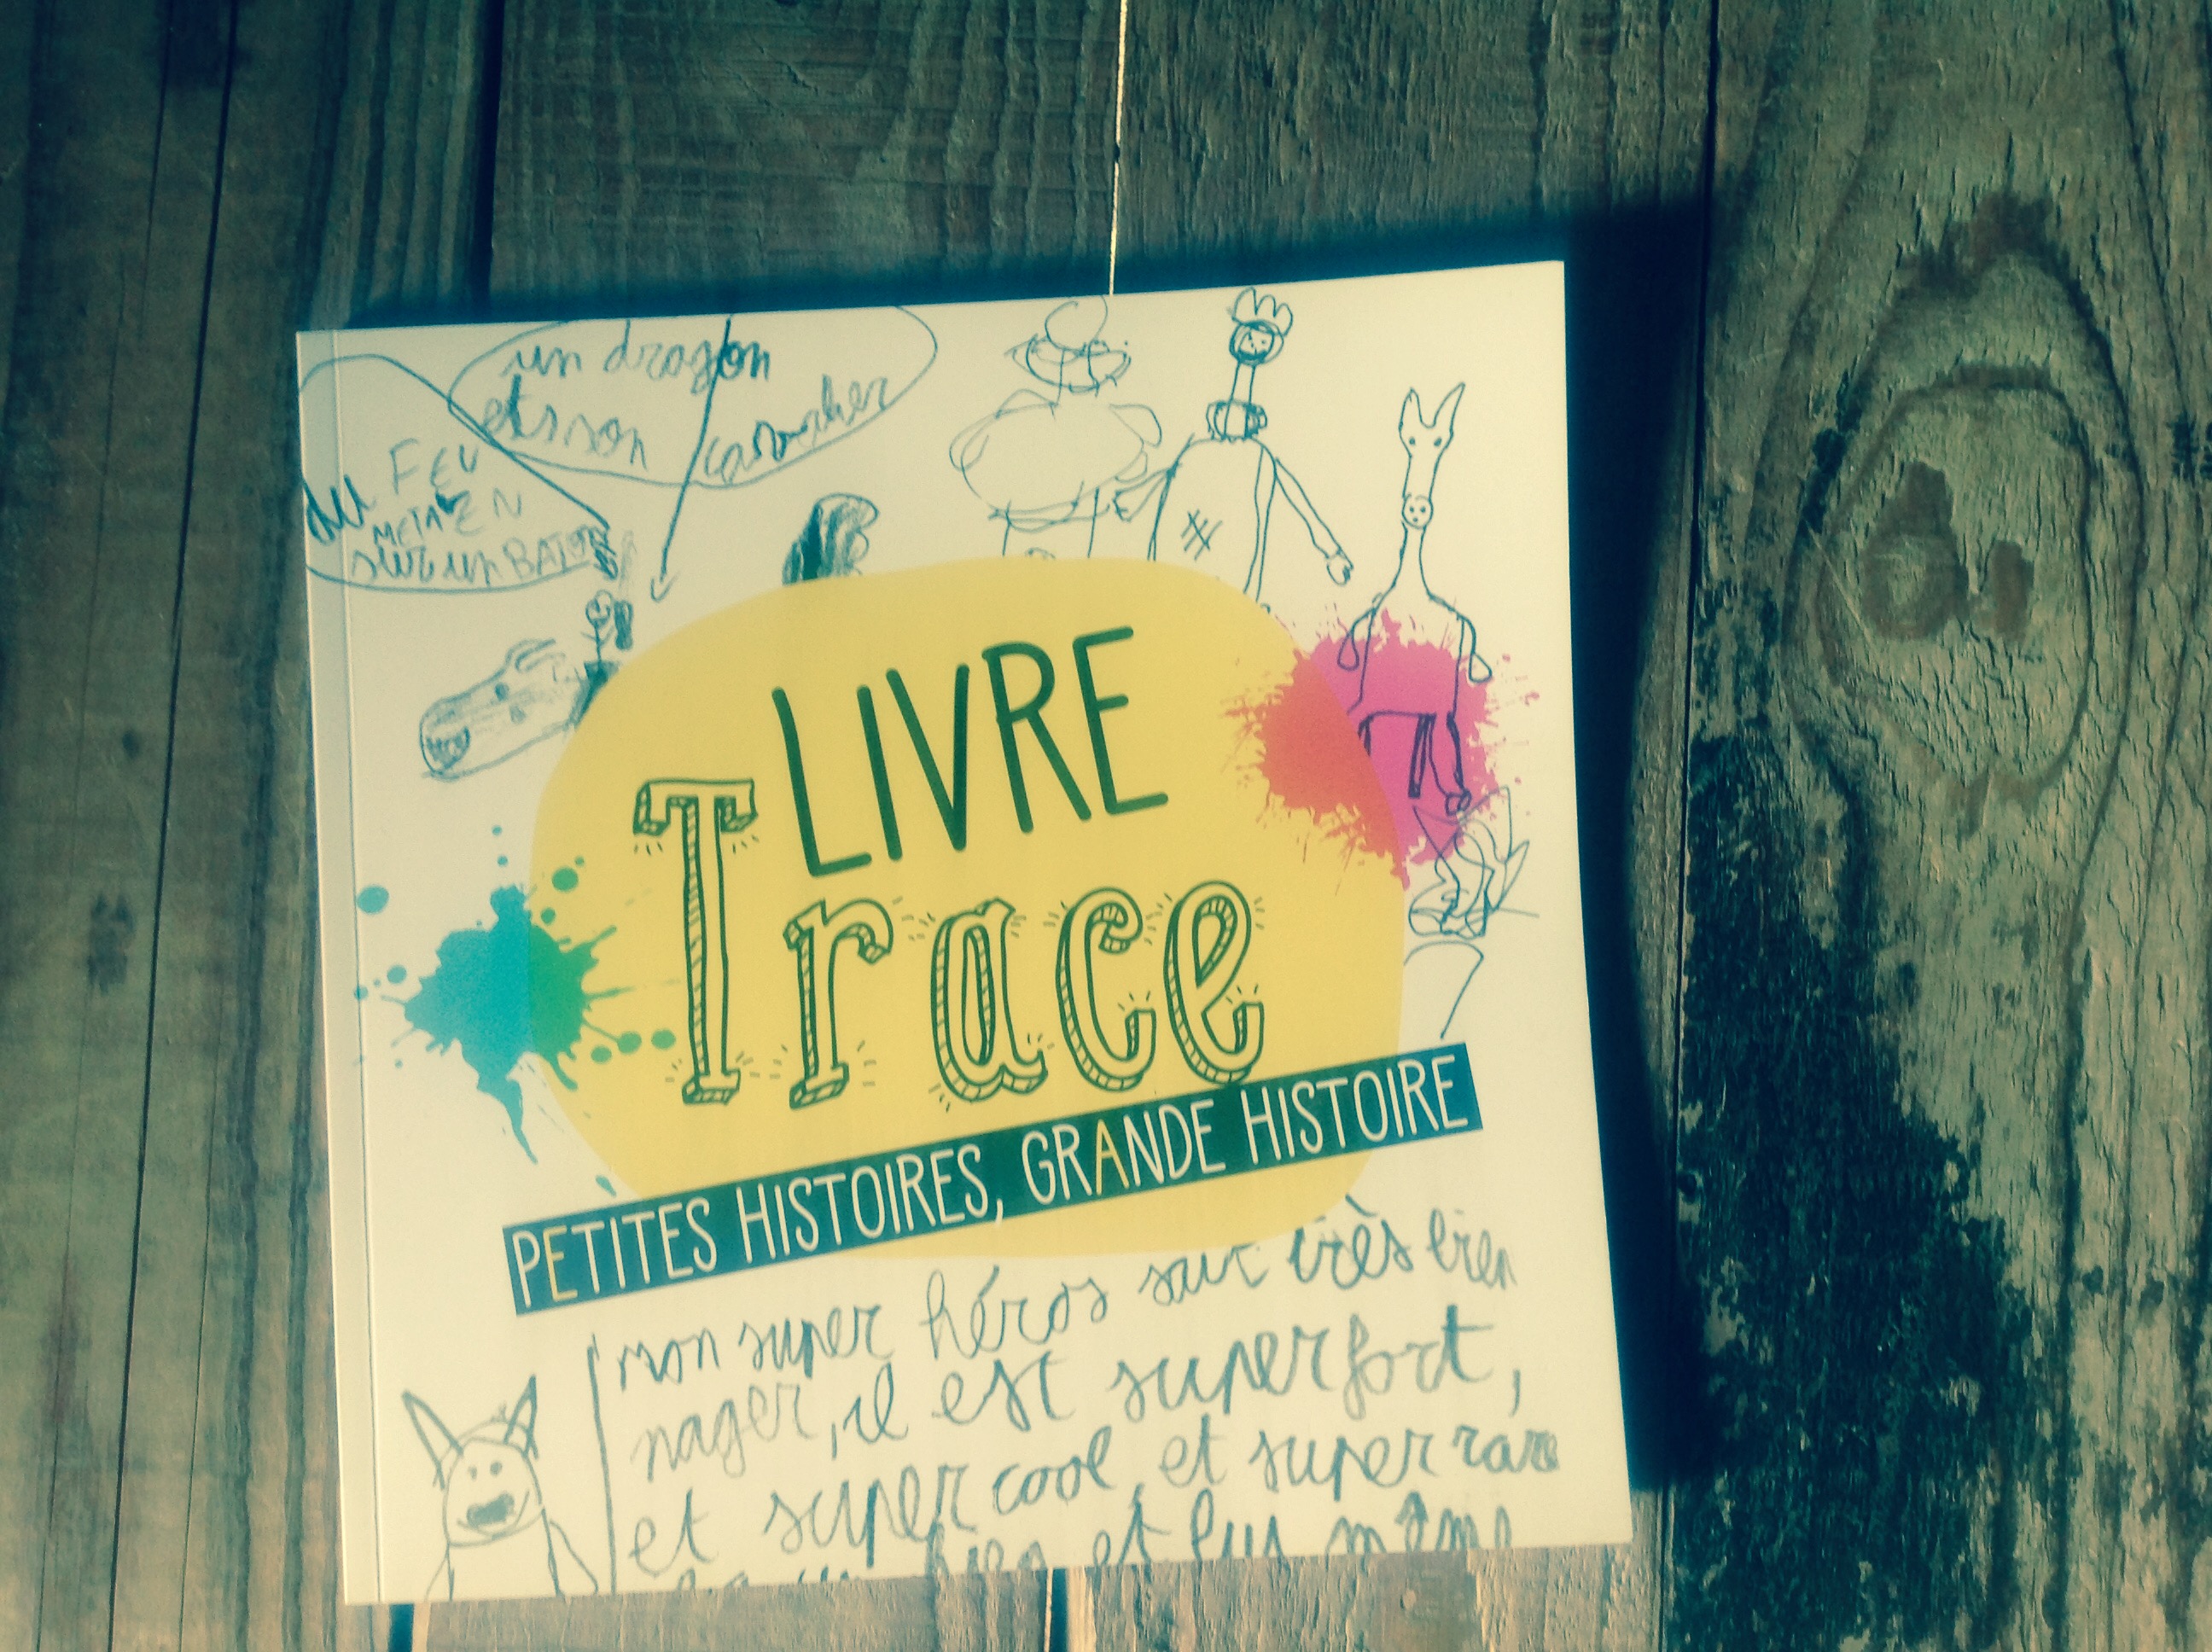 un dragon
et son
du FEU
METAEN
sur un BATO
LIVRE
Trace
PETITES HISTOIRES, GRANDE HISTOIRE
mon super héros sait très bien
nager, il est super fort,
et super cool et super rare
et lus même